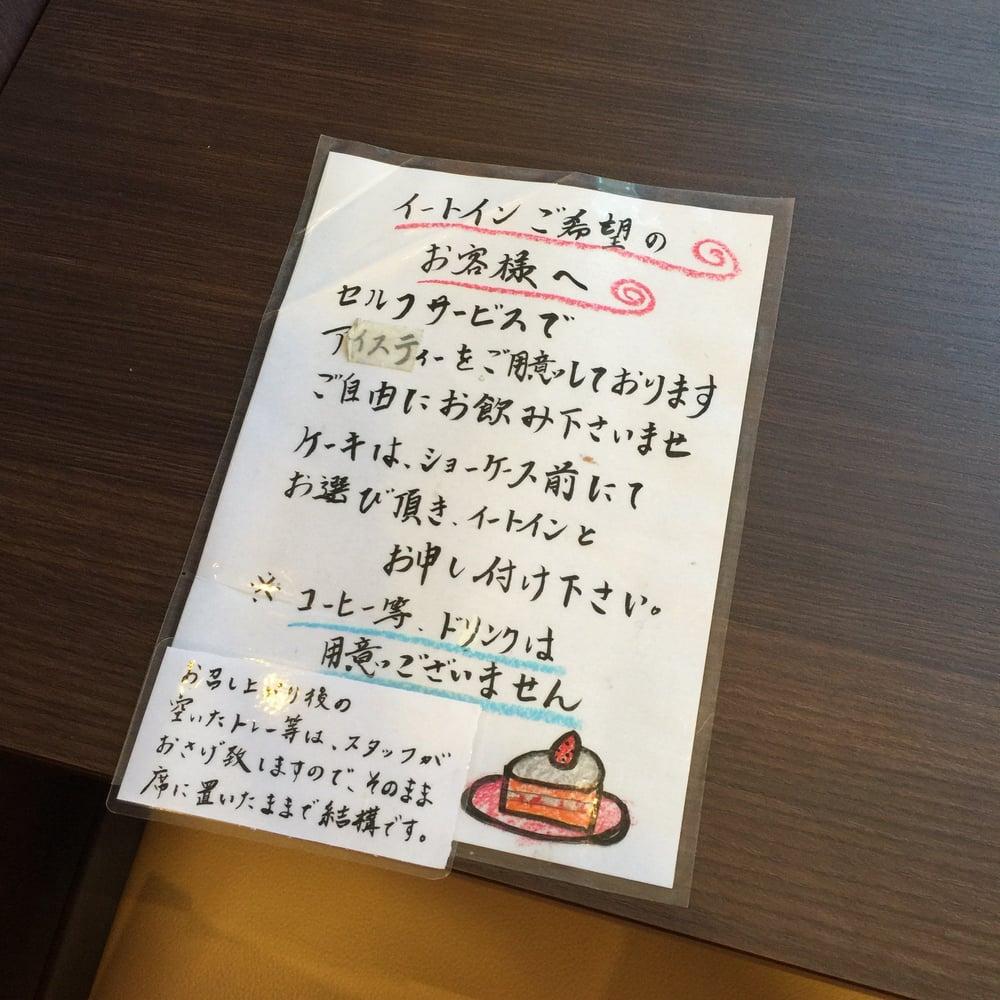 イートインご希望の
お客様へ
セルフサービスで
アイスティーをご用意しております
ご自由にお飲み下さいませ
ケーキは、ショーケース前にて
お選び頂き、イートインと
お申し付け下さい。
※ コーヒー等、ドリンクは
用意はございません
お召し上がり後の
空いたトレー等は、スタッフが
おさげ致しますので、そのまま
席に置いたままで結構です。